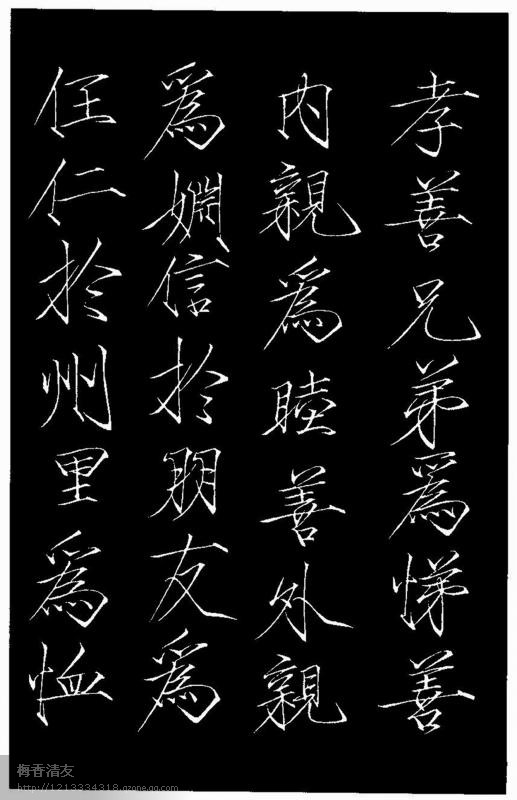 孝善兄弟爲悌善
内親爲睦善外親
爲婣信於朋友爲
任仁於州里爲恤
梅香清友
http://1213334318.qzone.qq.com